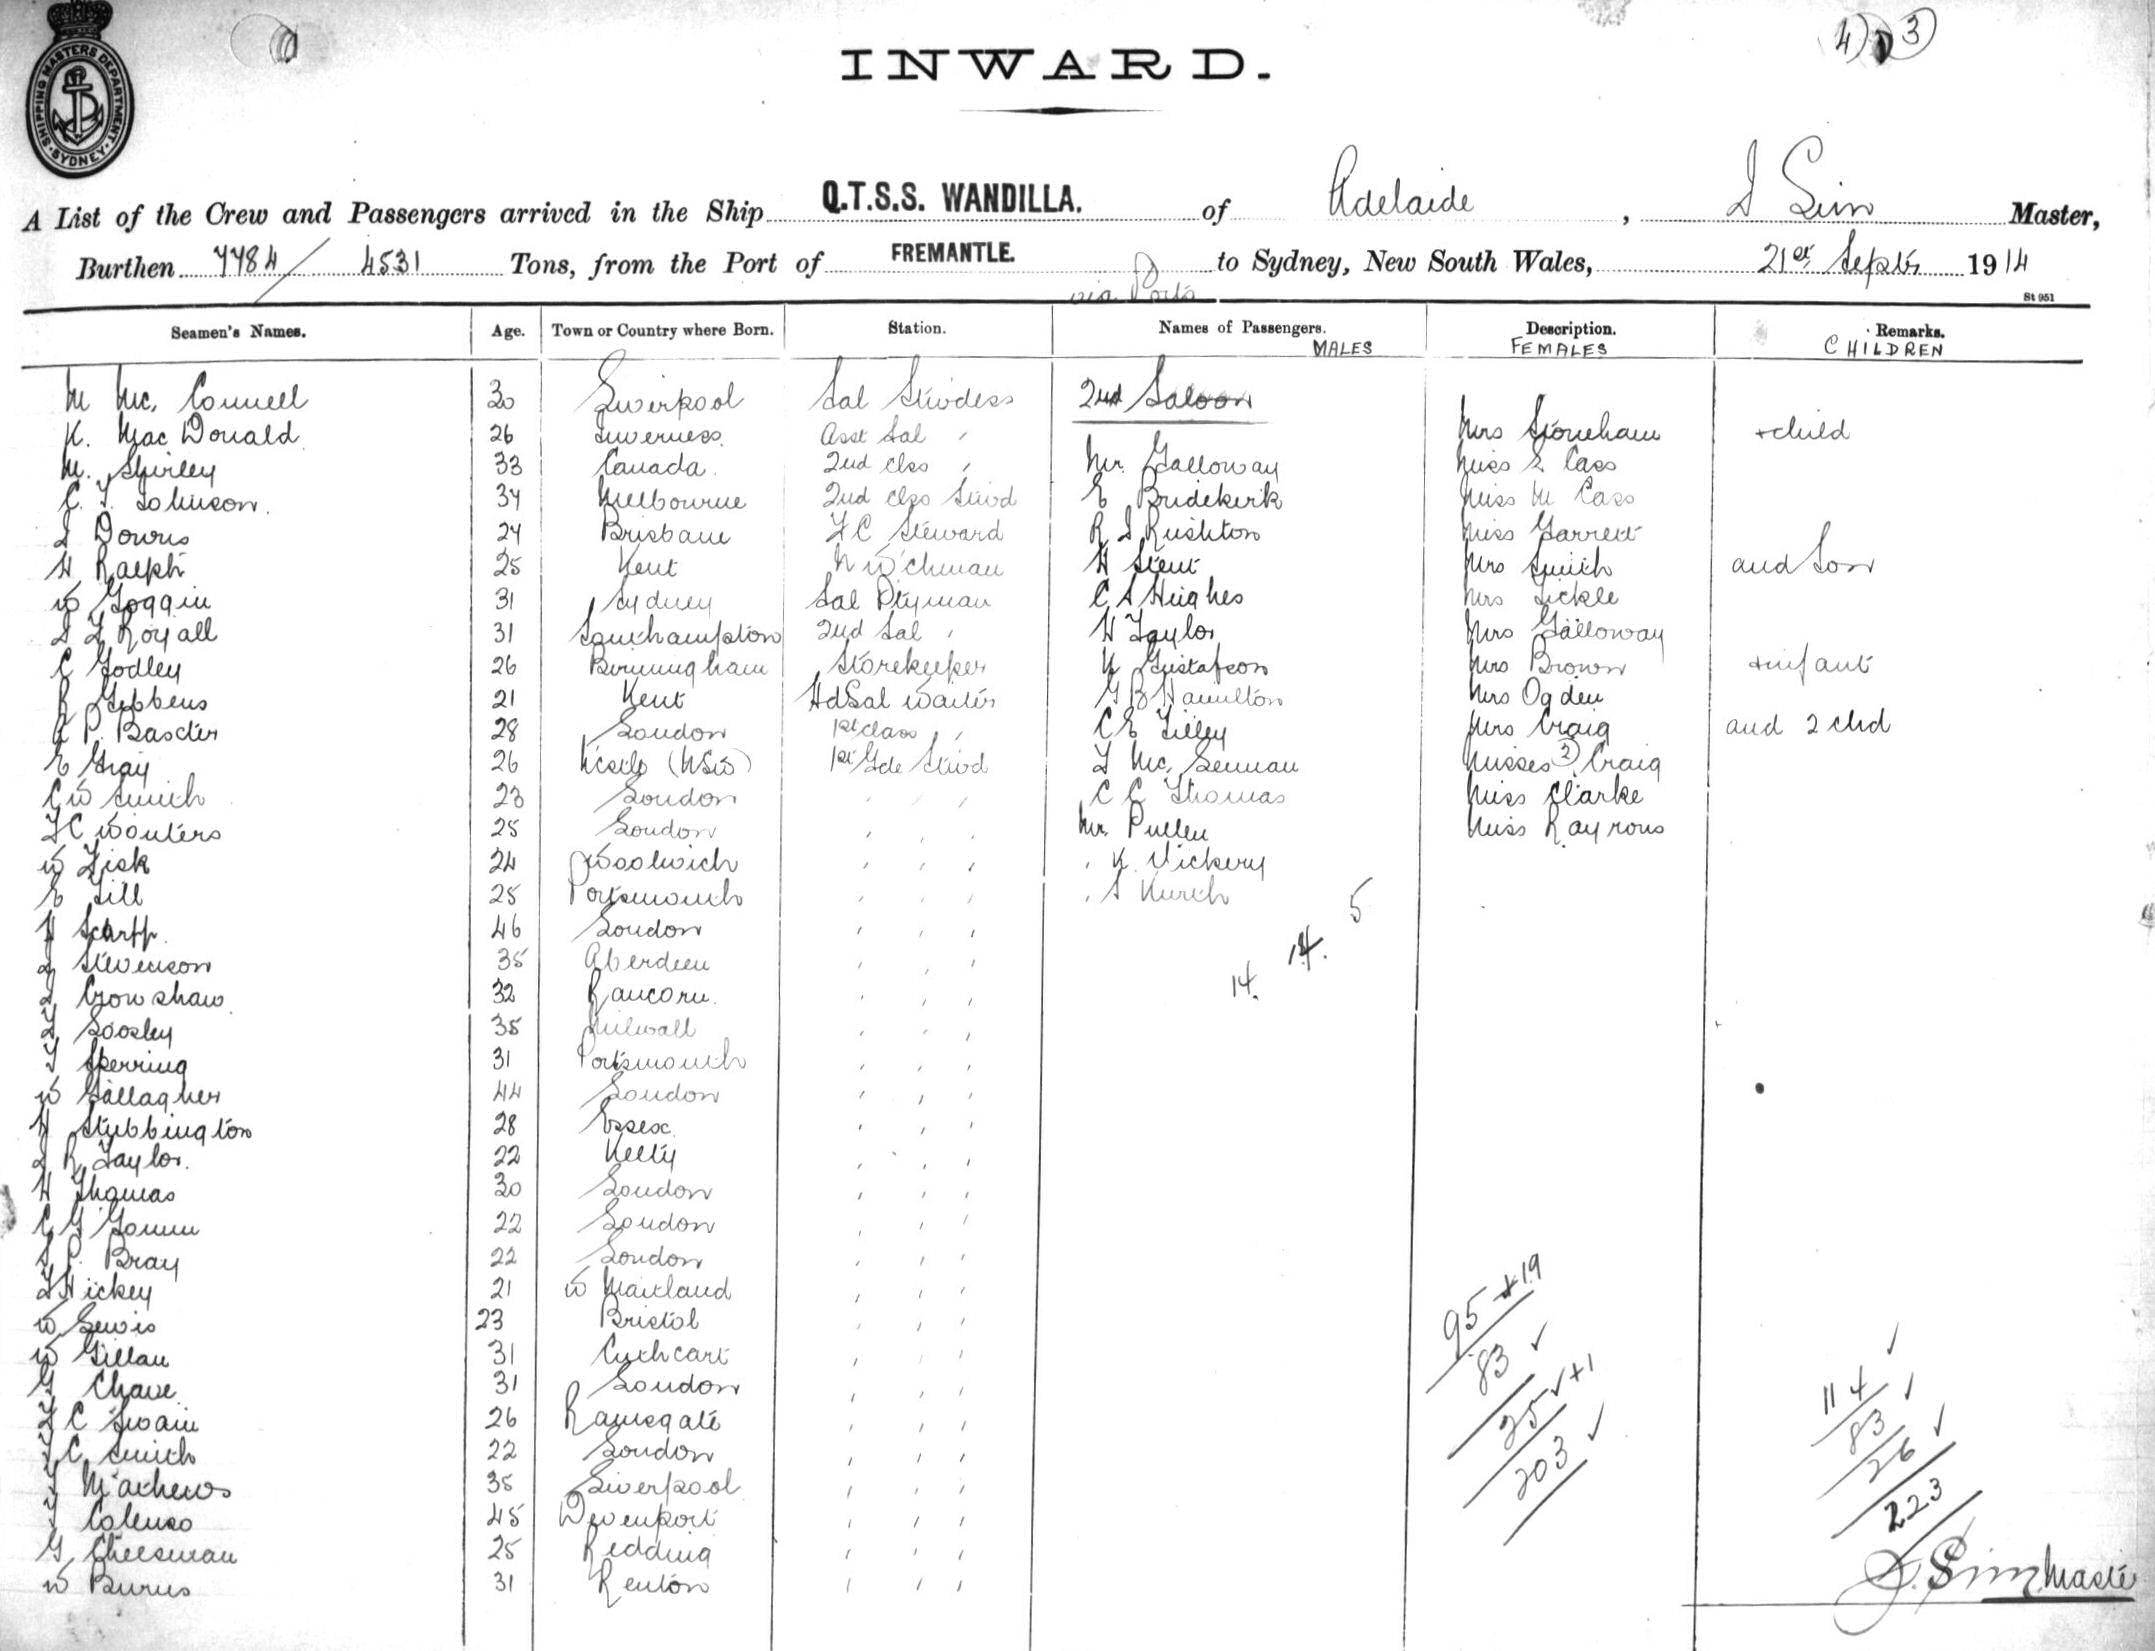 4) 3
SHIPPING MASTERS DEPARTMENT SYDNEY
INWARD.
A List of the Crew and Passengers arrived in the Ship Q.T.S.S. WANDILLA. of Adelaide, D Sim Master,
Burthen 7784 / 4531 Tons, from the Port of FREMANTLE. to Sydney, New South Wales, 21st Septr 1914
via Ports
St 951
Seamen's Names. Age. Town or Country where Born. Station. Names of Passengers. Description. Remarks.
MALES FEMALES CHILDREN
M Mc. Connell 30 Liverpool Sal Stwdess 2nd Saloon
K. Mac Donald 26 Inverness Asst Sal " Mrs Stoneham +child
M. Shirley 33 Canada. 2nd clss " Mr. Galloway Miss E Cass
C. T. Johnson. 34 Melbourne 2nd clss Stwd E Bridekirk Miss M Cass
J Downs 24 Brisbane F C Steward R J Rushton Miss Garrett
H Ralph 25 Kent N W'chman H Stent Mrs Smith and Son
W Goggin 31 Sydney Sal Ptyman C A Hughes Mrs Tickle
Royall 31 Southampton 2nd Sal " H Taylor Mrs Galloway
C Godley 26 Birmingham Storekeeper K Gustafson Mrs Brown +infant
R Gibbens 21 Kent Hd Sal Waiter G B Hamilton Mrs Ogden
A P. Baxter 28 London 1st class " C E Tilley Mrs Craig and 2 chd
E Gray 26 N'castle (NSW) 1st Gde Stwd Mc. Lennan Misses (2) Craig
C W Smith 23 London " " " C C Thomas Miss Clarke
F C Wouters 25 London " " Mr. Pullen Miss Rayrous
W Fisk 24 Woolwich " " " " K. Vickery
E Till 25 Portsmouth " " " "
H Scarff. 46 London " " " 5
J Stevenson 35 Aberdeen " " " 14.
J Crowshaw 32 Rancorn. " " " 14.
Loosley 35 Milwall " " "
T Sperring 31 Portsmouth " " "
W Gallagher 44 London " " "
H Stubbington 28 Essex. " " "
J R Taylor. 22 Kelty " " "
H Thomas 30 London " " "
C G Gomm 22 London " " "
P. Bray 22 London " " "
Hickey 21 W Maitland " " "
W Lewis 23 Bristol " " "
W Gillan 31 Cathcart " " "
G Chave 31 London " " "
F C Swain 26 Ramsgate " " "
F C Smith 22 London " " "
Mathews 35 Liverpool " " "
Colenso 45 Devenport " " "
G Cheesman 25 Redding " " "
W Burns 31 Renton " " "
95 +19
83 ✓
25 ✓ +1
203 ✓
114 ✓
83 ✓
26 ✓
223
D. Sim Master